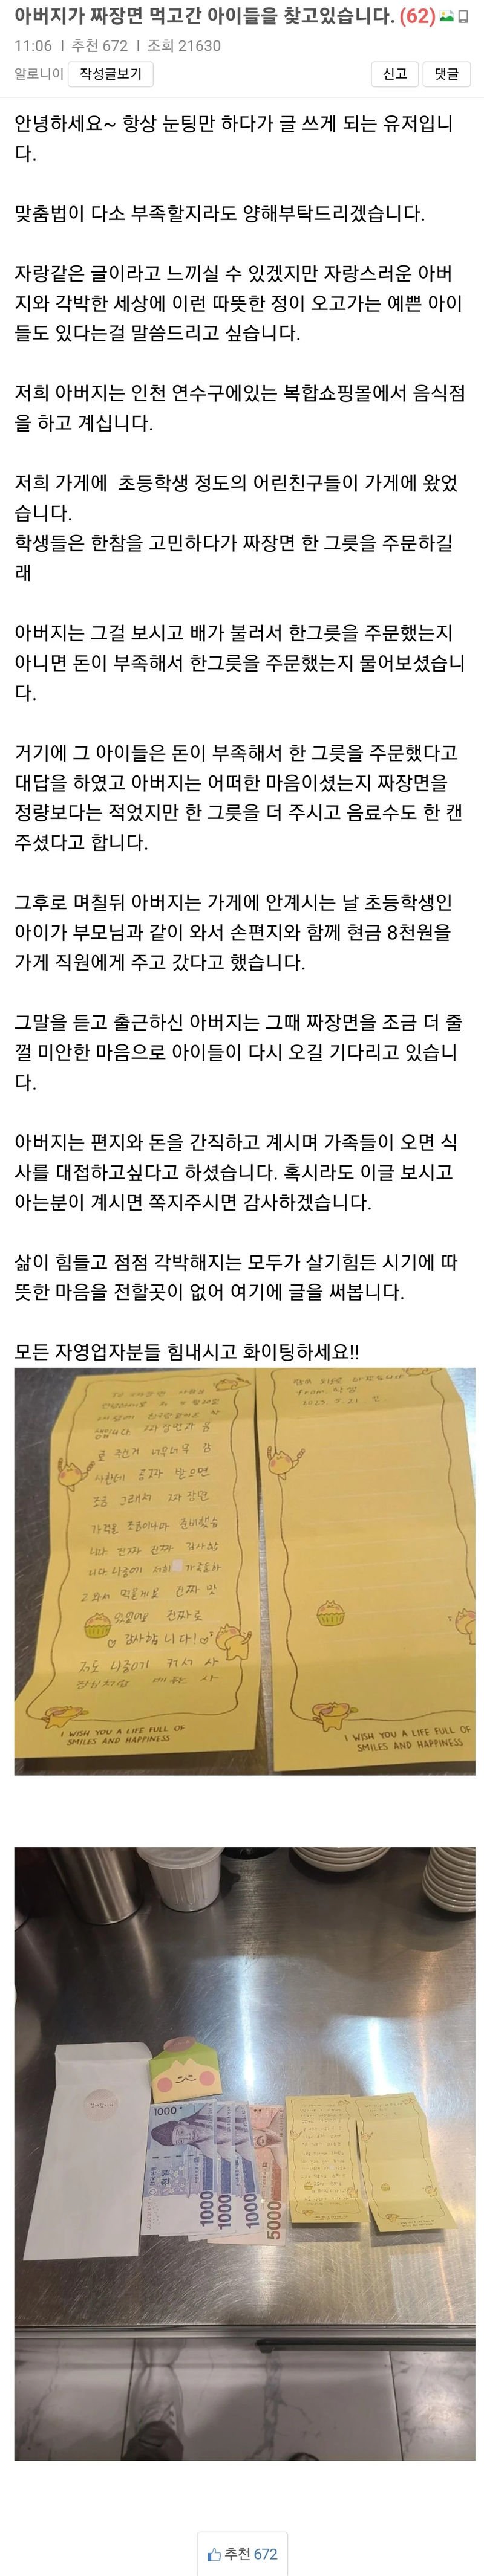 아버지가 짜장면 먹고간 아이들을 찾고있습니다. (62)
11:06 l 추천 672 l 조회 21630
알로니아 작성글보기 신고 댓글
안녕하세요~ 항상 눈팅만 하다가 글 쓰게 되는 유저입니
다.
맞춤법이 다소 부족할지라도 양해부탁드리겠습니다.
자랑같은 글이라고 느끼실 수 있겠지만 자랑스러운 아버
지와 각박한 세상에 이런 따뜻한 정이 오고가는 예쁜 아이
들도 있다는걸 말씀드리고 싶습니다.
저희 아버지는 인천 연수구에있는 복합쇼핑몰에서 음식점
을 하고 계십니다.
저희 가게에  초등학생 정도의 어린친구들이 가게에 왔었
습니다.
학생들은 한참을 고민하다가 짜장면 한 그릇을 주문하길
래
아버지는 그걸 보시고 배가 불러서 한그릇을 주문했는지
아니면 돈이 부족해서 한그릇을 주문했는지 물어보셨습니
다.
거기에 그 아이들은 돈이 부족해서 한 그릇을 주문했다고
대답을 하였고 아버지는 어떠한 마음이셨는지 짜장면을
정량보다는 적었지만 한 그릇을 더 주시고 음료수도 한 캔
주셨다고 합니다.
그후로 며칠뒤 아버지는 가게에 안계시는 날 초등학생인
아이가 부모님과 같이 와서 손편지와 함께 현금 8천원을
가게 직원에게 주고 갔다고 했습니다.
그말을 듣고 출근하신 아버지는 그때 짜장면을 조금 더 줄
껄 미안한 마음으로 아이들이 다시 오길 기다리고 있습니
다.
아버지는 편지와 돈을 간직하고 계시며 가족들이 오면 식
사를 대접하고싶다고 하셨습니다. 혹시라도 이글 보시고
아는분이 계시면 쪽지주시면 감사하겠습니다.
삶이 힘들고 점점 각박해지는 모두가 살기힘든 시기에 따
뜻한 마음을 전할곳이 없어 여기에 글을 써봅니다.
모든 자영업자분들 힘내시고 화이팅하세요!!
생입니다 짜장면과 음
료 주신거 너무너무 감
사한데 공짜 받으면
조금 그래서 짜장면
가격을 조금이나마 준비했습
니다 진짜 진짜 감사합
니다 나중에 저희 가족들하
고 와서 먹을게요 진짜 맛
있었어요 진짜로
감사합니다!
저도 나중에 커서 사
I WISH YOU A LIFE FULL OF
SMILES AND HAPPINESS
2023. 5. 21
I WISH YOU A LIFE FULL OF
SMILES AND HAPPINESS
1000
1000
1000
1000
5000
추천 672